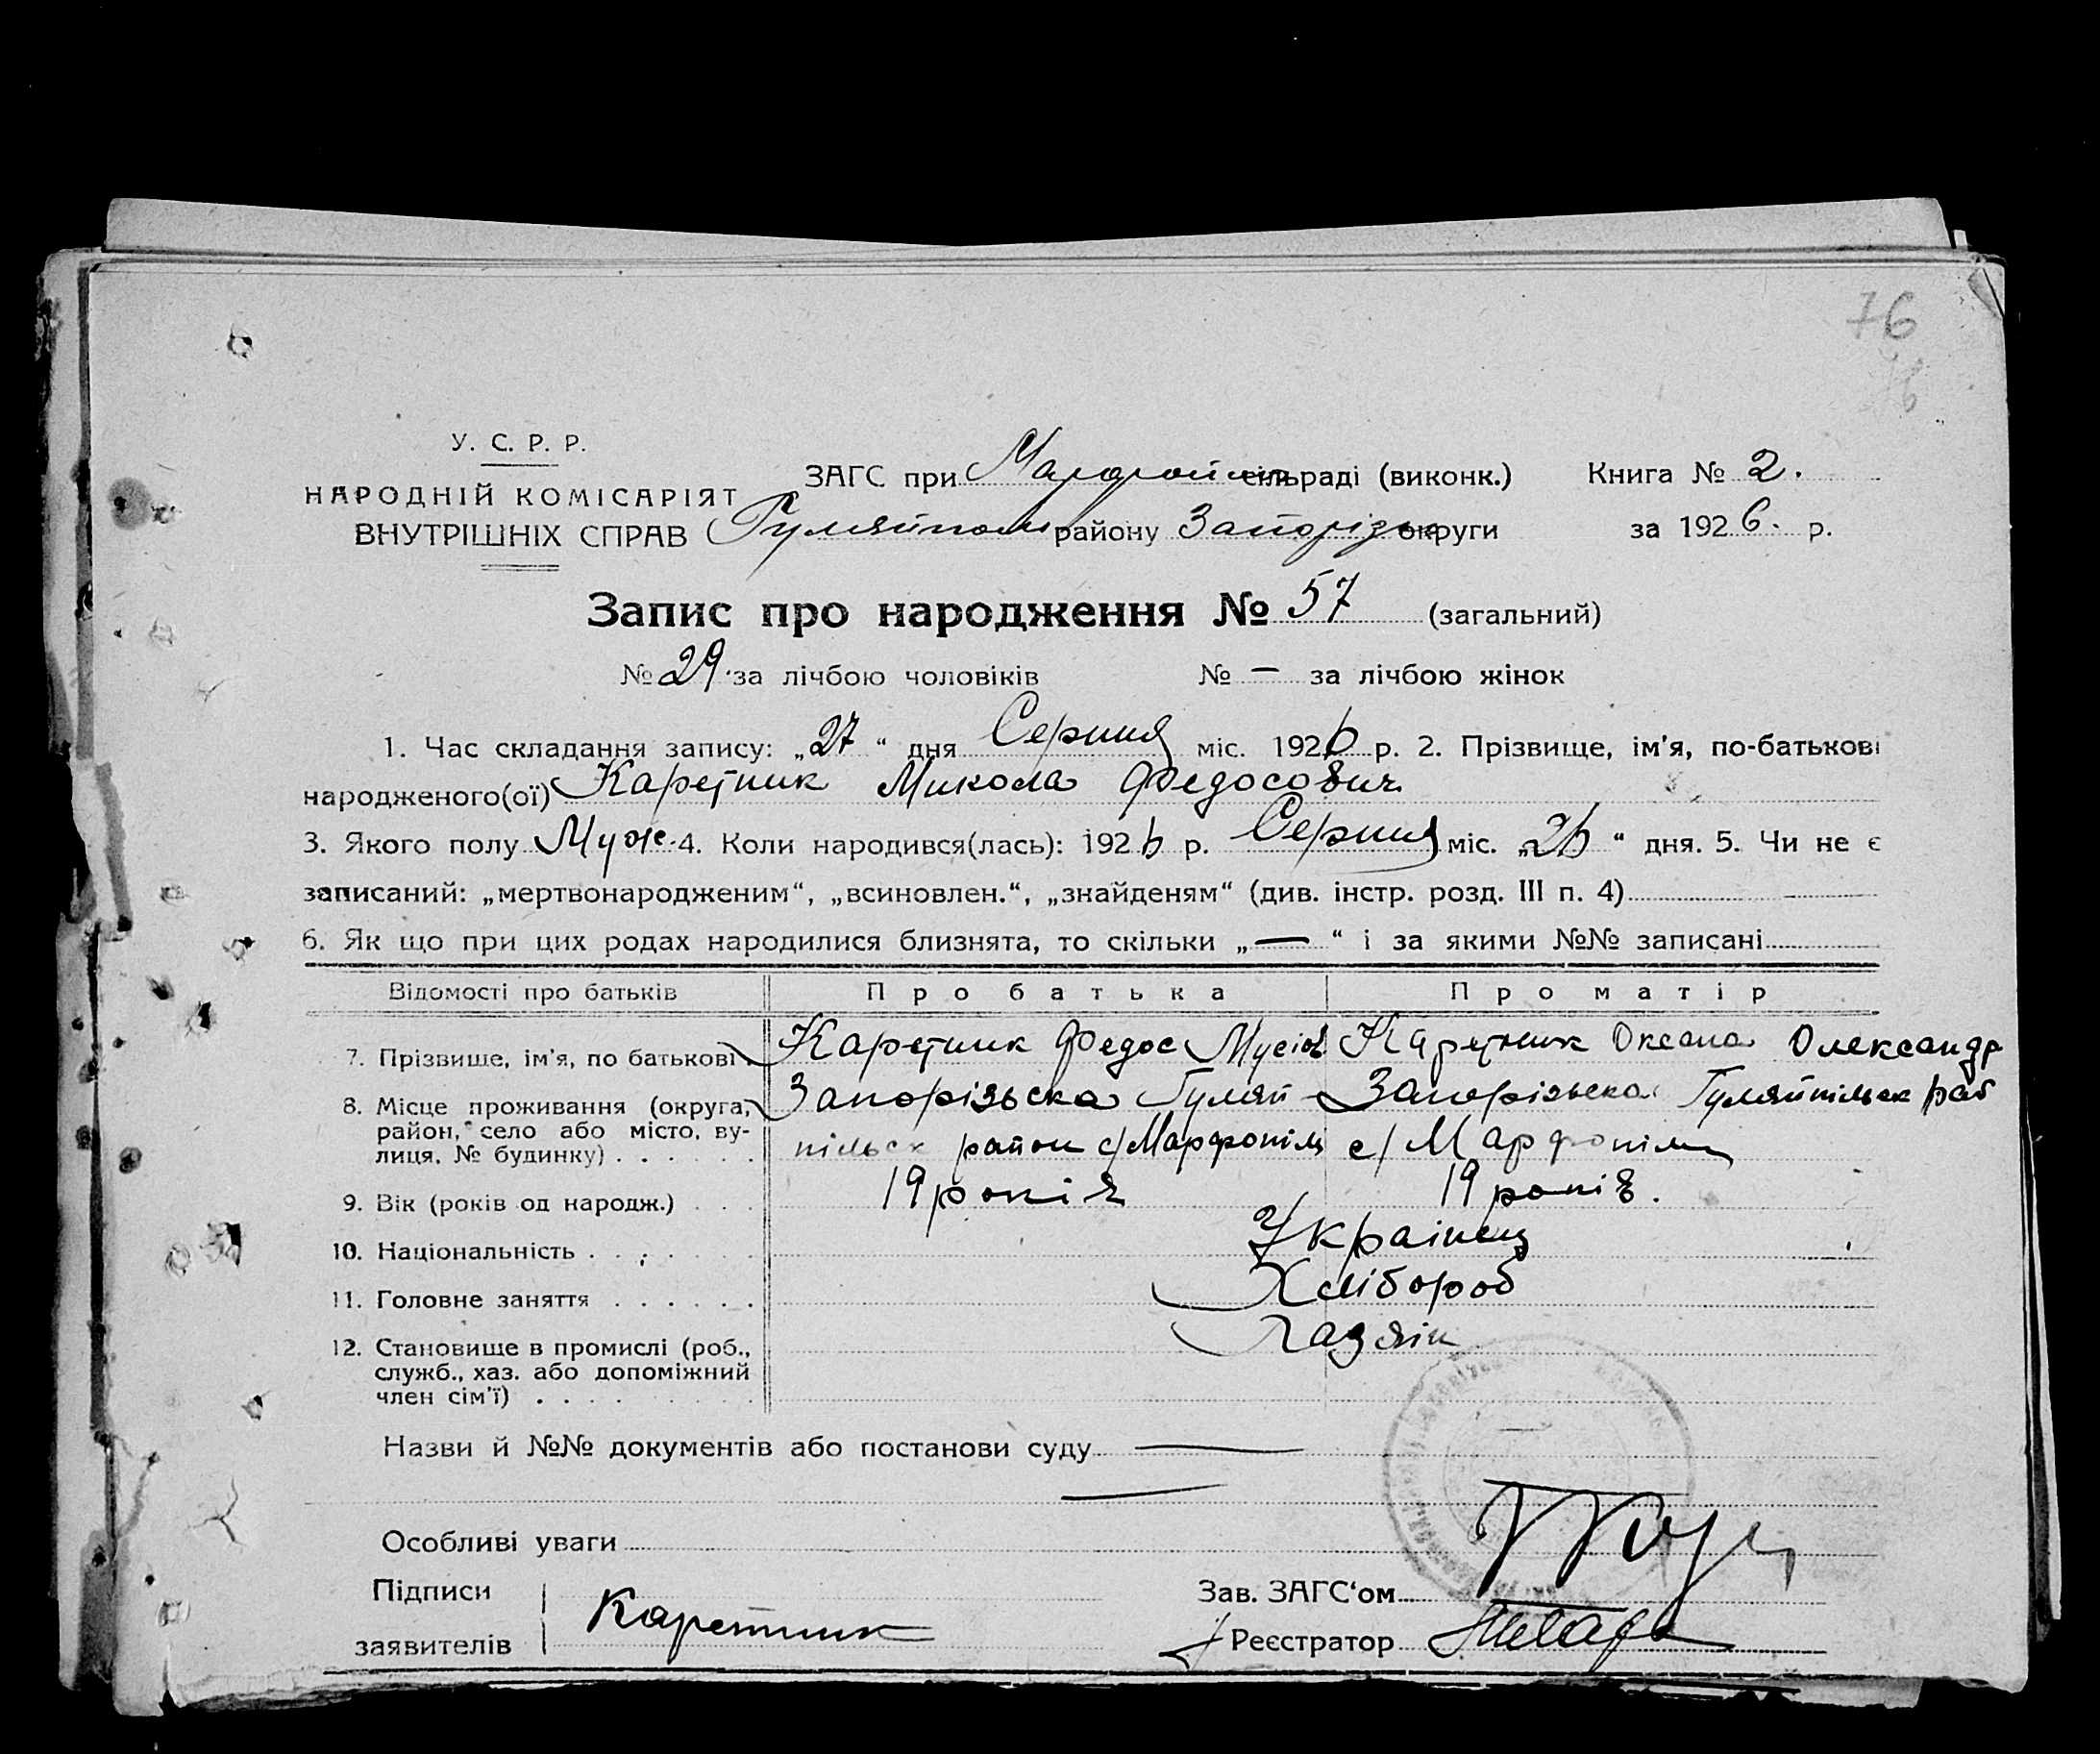 76
У. С. Р. Р.
НАРОДНІЙ КОМІСАРІЯТ
ВНУТРІШНІХ СПРАВ
ЗАГС при Марфопіль сільраді (виконк.) Книга № 2.
Гуляйпол району Запорізьк округи за 1926. р.
Запис про народження № 57 (загальний)
№ 29. за лічбою чоловіків № — за лічбою жінок
1. Час складання запису: „27“ дня Серпня міс. 1926 р. 2. Прізвище, ім'я, по-батькові
народженого(ої) Каретник Микола Федосович
3. Якого полу Муж. 4. Коли народився(лась): 1926 р. Серпня міс. „26“ дня. 5. Чи не є
записаний: „мертвонародженим“, „всиновлен.“, „знайденям“ (див. інстр. розд. III п. 4)
6. Як що при цих родах народилися близнята, то скільки „—“ і за якими №№ записані
Відомості про батьків Про батька Про матір
7. Прізвище, ім'я, по батькові Каретник Федос Мусіов Каретник Оксана Олександр
8. Місце проживання (округа, район, село або місто, вулиця, № будинку) Запорізьска Гуляй- Запорізьска Гуляйпільск раб
пільск район с/Марфопіль с/Марфопіль
9. Вік (років од народж.) 19 років 19 років.
10. Національність Українец
11. Головне заняття Хлібороб
12. Становище в промислі (роб., служб., хаз. або допоміжний член сім'ї) Хазяін
Назви й №№ документів або постанови суду —
Особливі уваги
Підписи
заявителів Каретник
Зав. ЗАГС'ом
Реєстратор